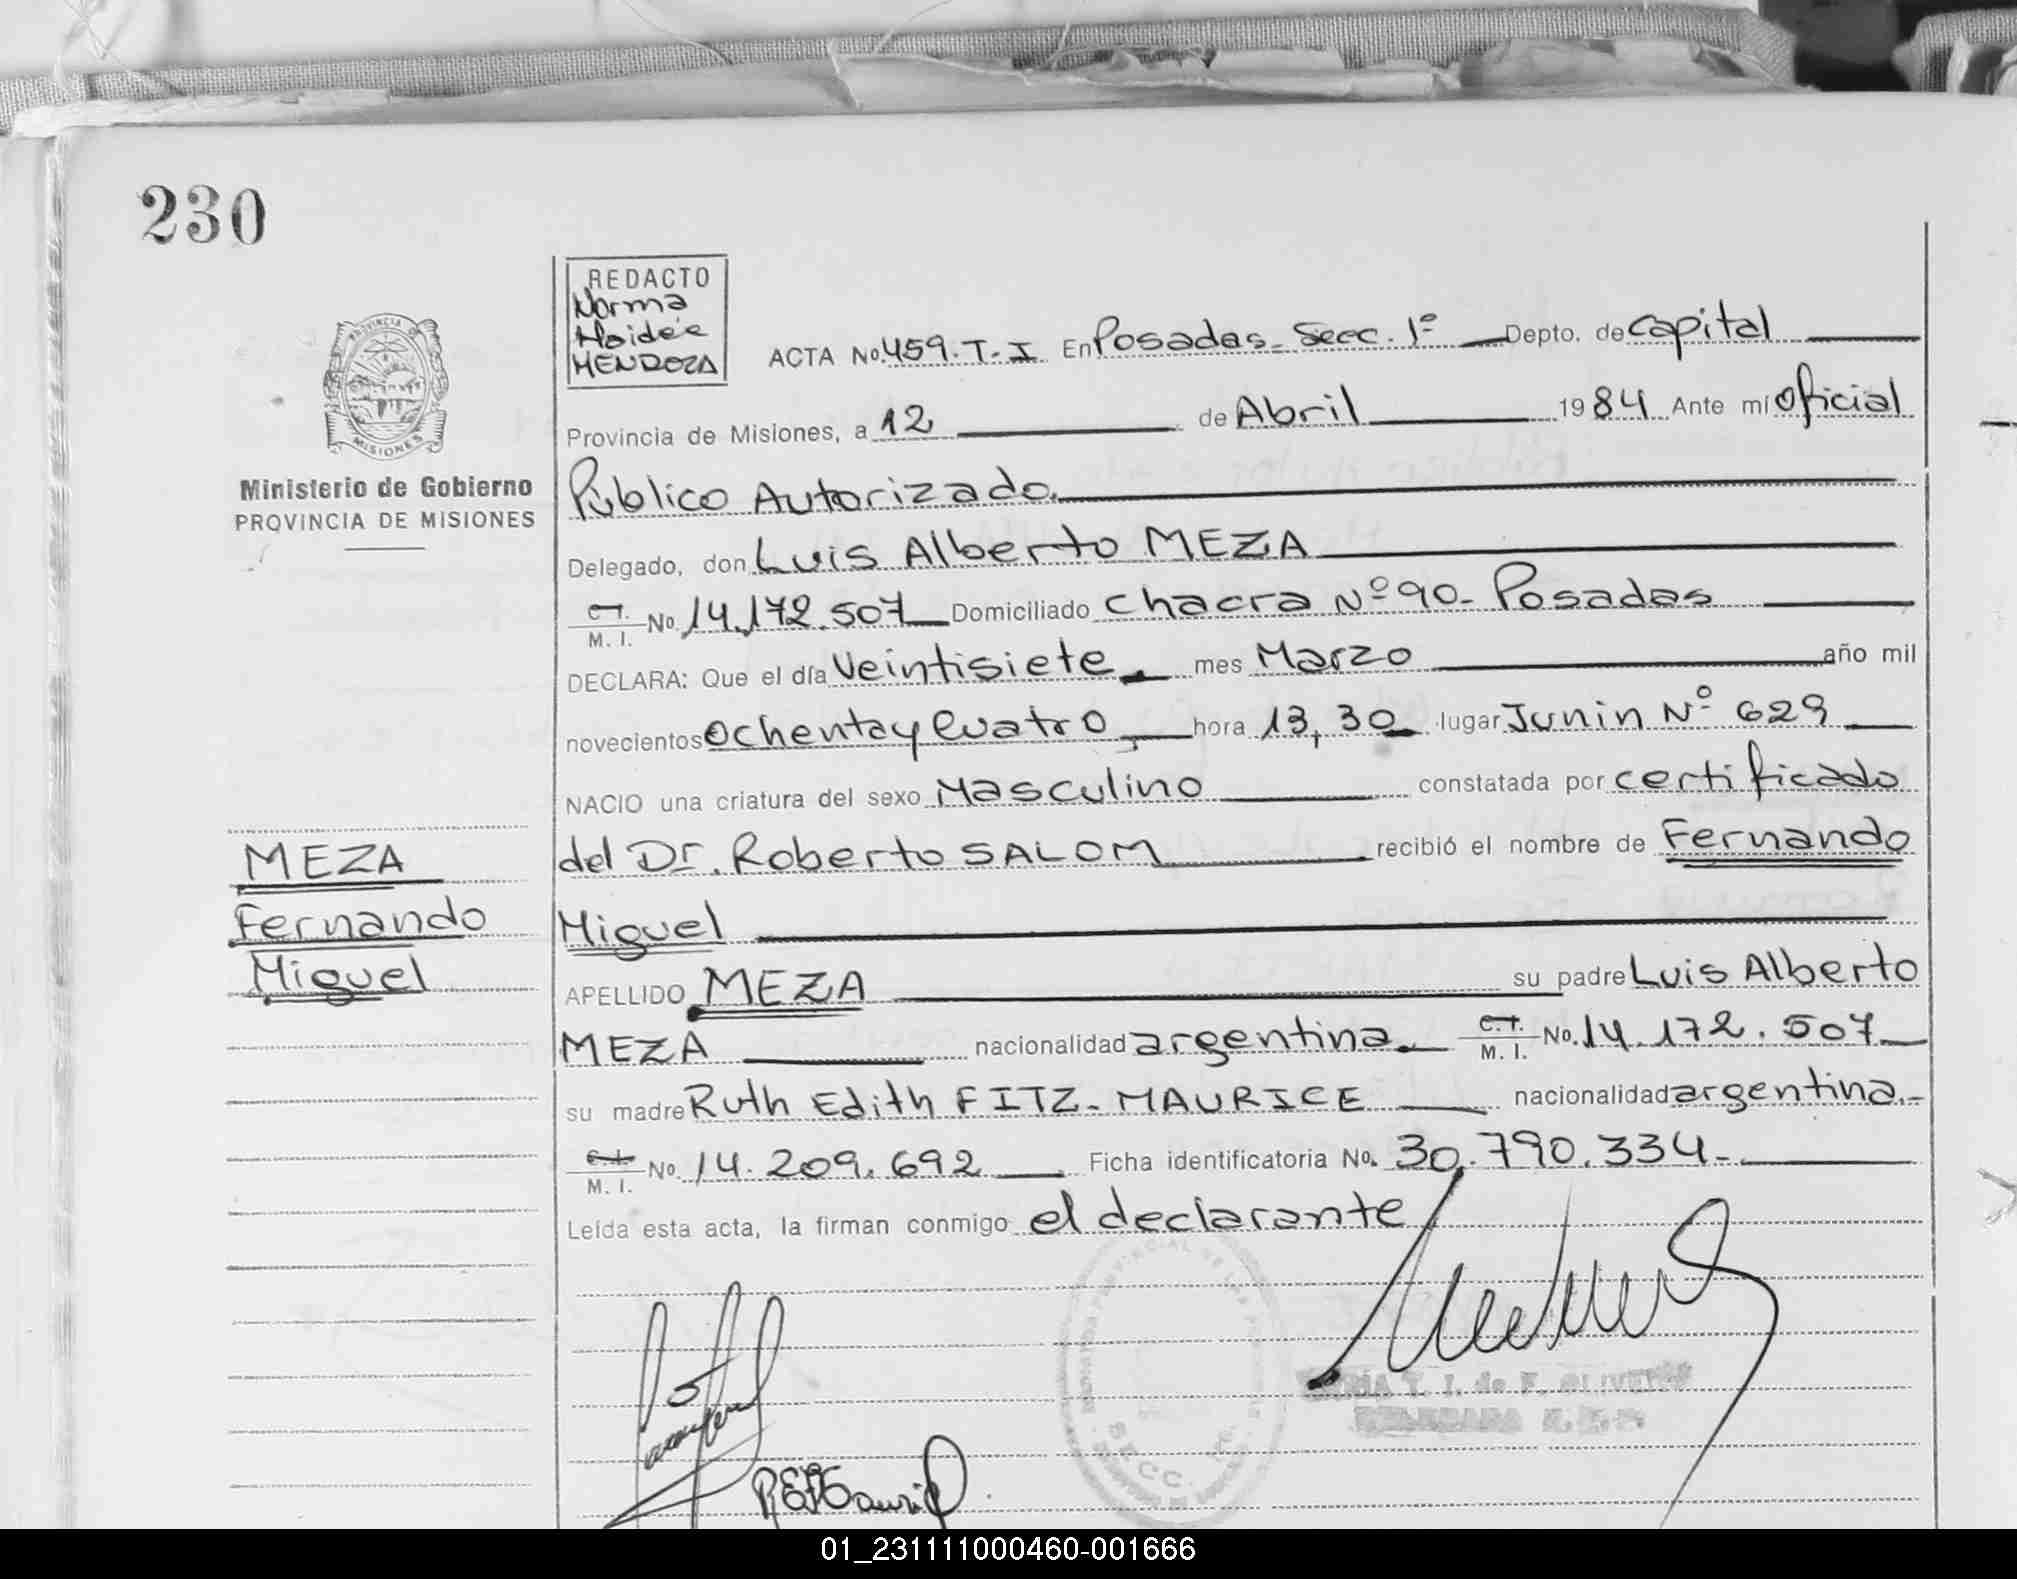 230
REDACTO
Norma
Haidée
MENDOZA
ACTA No. 459. T. I En Posadas - Secc. 1º Depto. de Capital
Provincia de Misiones, a 12 de Abril 1984 Ante mí Oficial
PROVINCIA DE
MISIONES
Ministerio de Gobierno
PROVINCIA DE MISIONES
Público Autorizado.
Delegado, don Luis Alberto MEZA
C.I.
M. I. No. 14.172.507 Domiciliado Chacra Nº 90 - Posadas
DECLARA: Que el día Veintisiete mes Marzo año mil
novecientos Ochenta y Cuatro, hora 13,30 lugar Junin Nº 629
NACIO una criatura del sexo Masculino constatada por certificado
MEZA
Fernando
Miguel
del Dr. Roberto SALOM recibió el nombre de Fernando
Miguel
APELLIDO MEZA su padre Luis Alberto
MEZA nacionalidad argentina C.I.
M. I. No. 14.172.507
su madre Ruth Edith FITZ-MAURICE nacionalidad argentina.-
C.I.
M. I. No. 14.209.692 Ficha identificatoria No. 30.790.334-
Leída esta acta, la firman conmigo el declarante
SECC.
01_231111000460-001666